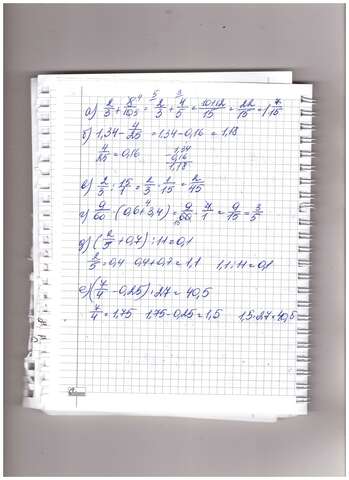 а) 2/3 + 8⁴/10₅ = 2/3⁵ + 4/5³ = 10+12/15 = 22/15 = 1 7/15
б) 1,34 - 4/25 = 1,34 - 0,16 = 1,18
4/25 = 0,16
- 1,34
0,16
1,18
в) 2/3 : 15/1 = 2/3 · 1/15 = 2/45
г) 9/60 · (0,6 + 3,4) = 9/60₁₅ · 4/1 = 9/15 = 3/5
д) (2/5 + 0,7) : 11 = 0,1
2/5 = 0,4 0,4 + 0,7 = 1,1 1,1 : 11 = 0,1
е) (7/4 - 0,25) · 27 = 40,5
7/4 = 1,75 1,75 - 0,25 = 1,5 1,5 · 27 = 40,5